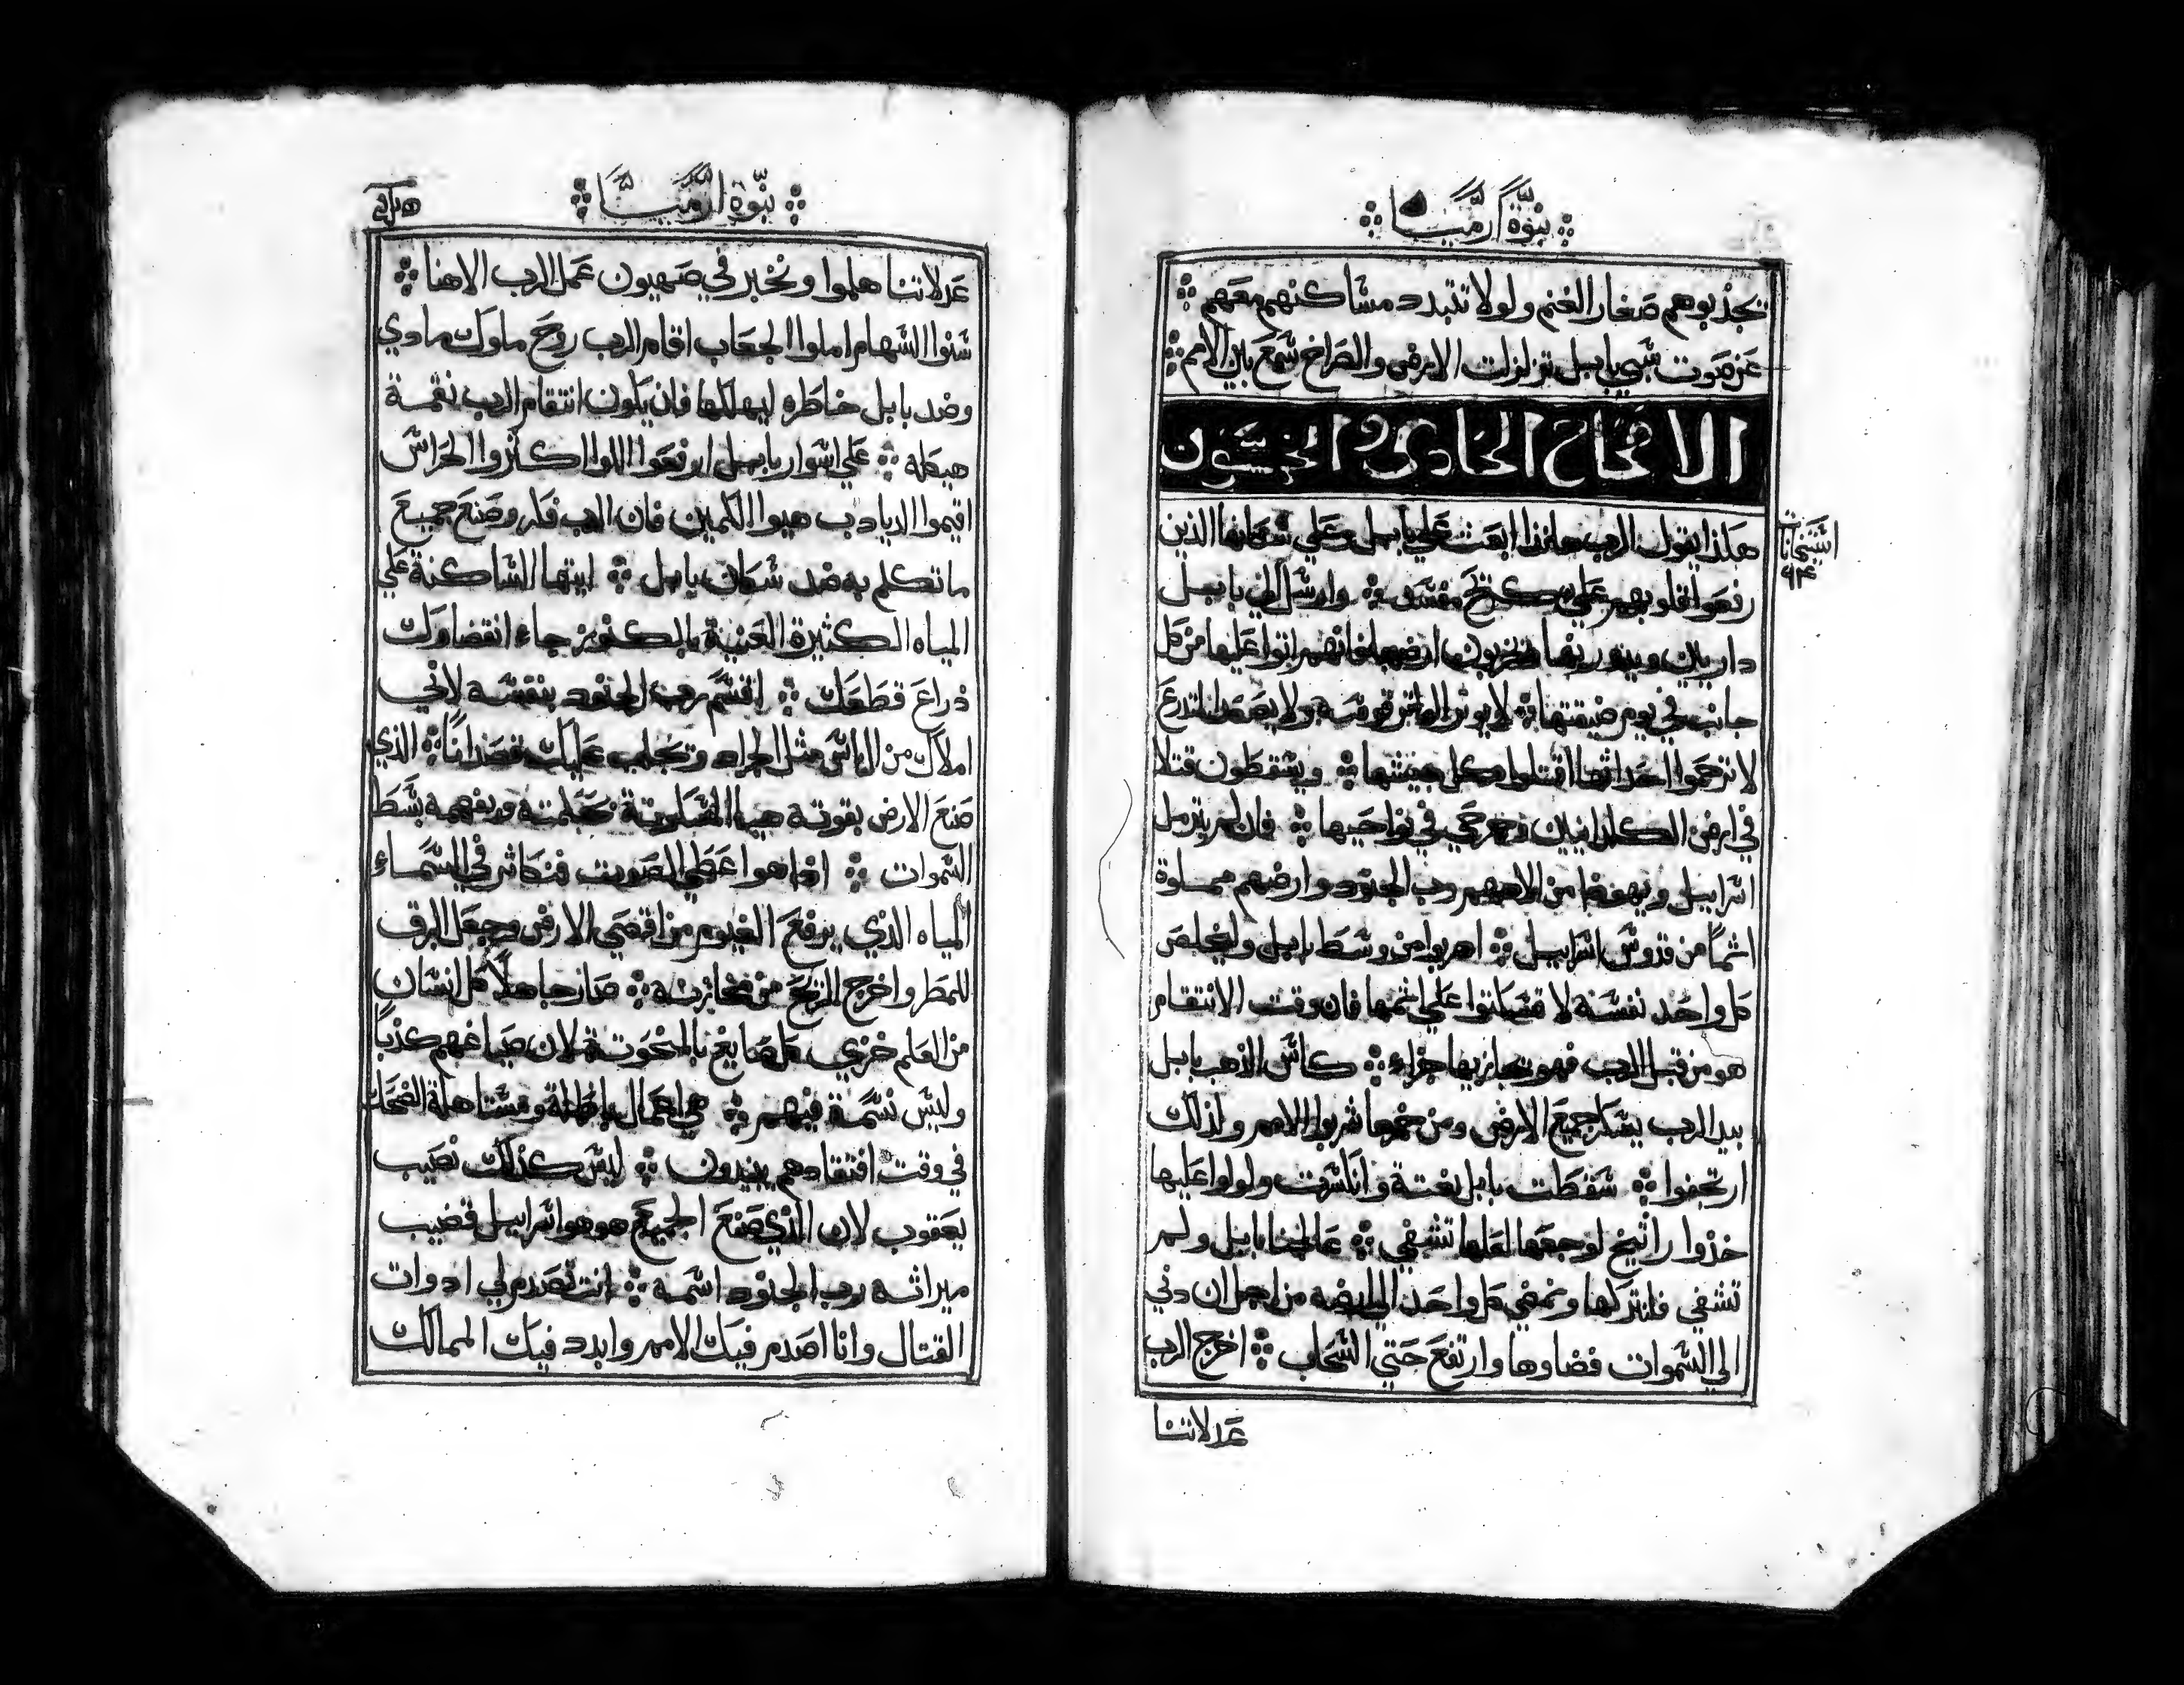 نبوة ارميا
يجذبوهم صغار الغنم ولولا تتبدد مساكنهم معهم
عن صوت سبي بابل تزلزلت الارض والصراخ سمع بين الامم
الاصحاح الحادي والخمسون
هكذا يقول الرب هانذا ابعث علي بابل وعلي سكانها الذين
رفعوا قلوبهم علي كريح مفسد وارسل الي بابل
دارين ويذرونها ويخربون ارضها لانهم اتوا عليها من كل
جانب في يوم ضيقتها لا يوتر الماتر قوسه ولا يصعد المتدرع
لا ترحموا احداثها اقتلوا كل جيشها ويسقطون قتلا
في ارض الكلدانيين وجرحي في نواحيها فان لم يترمل
اسراييل ويهوذا من الاههم رب الجنود وارضهم مملوة
اثماً من قدوس اسراييل اهربوا من وسط بابل وليخلص
كل واحد نفسه لا تسكتوا علي اثمها فان وقت الانتقام
هو من قبل الرب فهو يجازيها جزاء كاس الذهب بابل
بيد الرب يسكر جميع الارض ومن خمرها شربوا الامم ولذلك
ارتجفوا سقطت بابل بغتة وانسحقت ولولوا عليها
خذوا راتينج لوجعها لعلها تشفي عالجنا بابل ولم
تشفي فلنتركها ونمضي كل واحد الي ارضه من اجل ان دني
الي السموات قضاوها وارتفع حتي السحاب اخرج الرب
عدلاتنا
نبوة ارميا
عدلاتنا هلموا ونخبر في صهيون عمل الرب الاهنا
سنوا السهام املوا الجعاب اقام الرب روح ملوك مادي
وضد بابل خاطره ليهلكها فان يكون انتقام الرب نقمة
هيكله علي اسوار بابل ارفعوا اللوا اكثروا الحراس
اقيموا الديادب هيوا الكمين فان الرب فكر وصنع جميع
ما تكلم به ضد سكان بابل ايتها الساكنة علي
المياه الكثيرة الغنية بالكنوز جاء انقضاوك
ذراع قطعك اقسم رب الجنود بنفسه لاني
املاك من الناس مثل الجراد وتجلب عليك قصداناً الذي
صنع الارض بقوته هيا المسكونة بحكمته وبفهمه بسط
السموات اذا هو اعطي الصوت فتكاثر في السماء
المياه الذي يرفع الغيوم من اقصي الارض وجعل البرق
للمطر واخرج الريح من مخازنه صار جاهلاً كل انسان
من العلم خزي كل صايغ بالمنحوتة لان صياغهم كذباً
وليس نسمة فيهم هي اعمال باطلة ومستاهلة الضحك
في وقت افتقادهم يبيدون ليس كذلك نصيب
يعقوب لان الذي صنع الجميع هو هو اسراييل قضيب
ميراثه رب الجنود اسمه انت تصدم لي ادوات
القتال وانا اصدم فيك الامم وابدد فيك الممالك